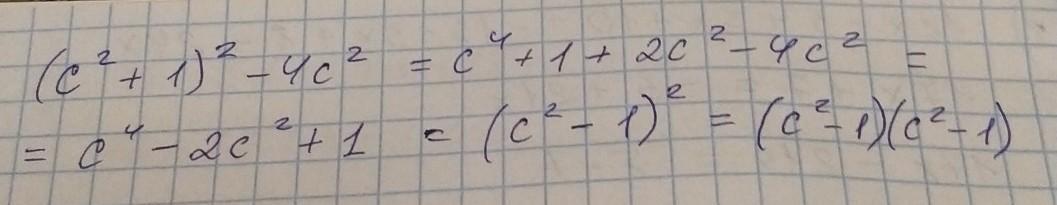 (c² + 1)² - 4c² = c⁴ + 1 + 2c² - 4c² =
= c⁴ - 2c² + 1 = (c² - 1)² = (c² - 1)(c² - 1)